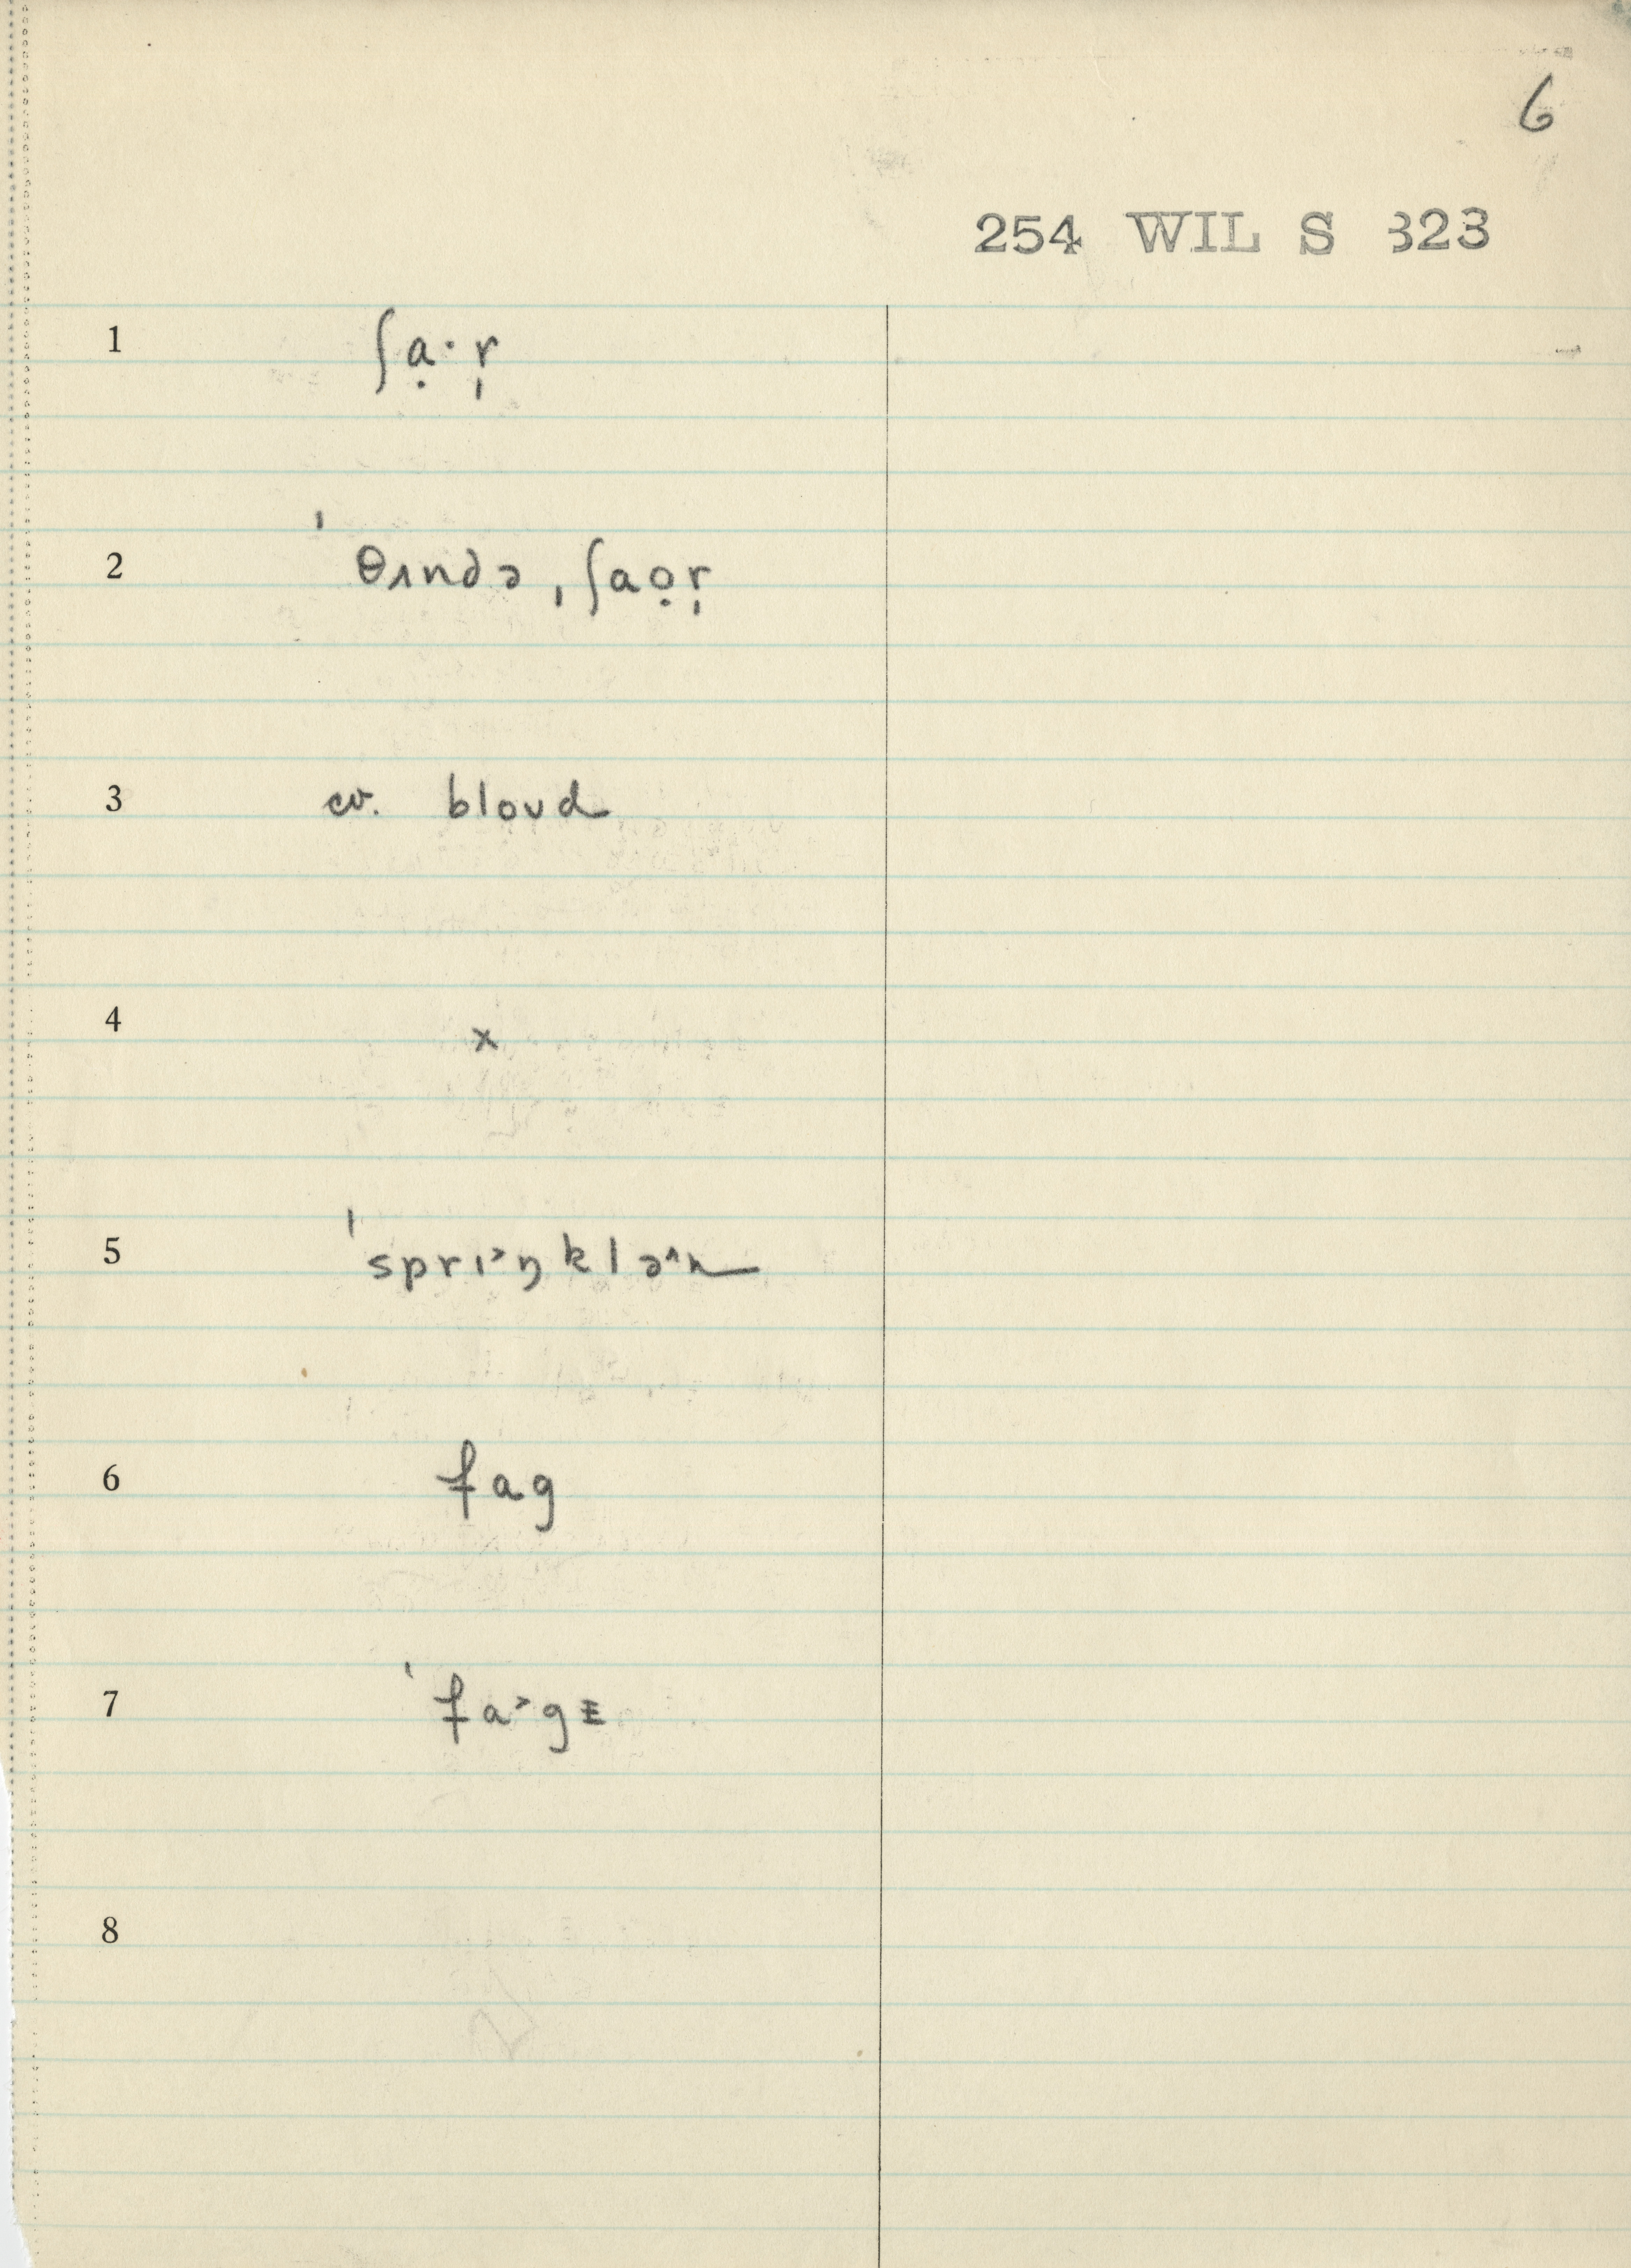 6
254 WIL S 323
1 ʃạ·r̩
2 ˈθʌndə ˌʃaọr̩
3 cv. bloʊd
4 x
5 ˈsprɪ˃ŋklə˄n
6 fag
7 ˈfa˃gɪ
8